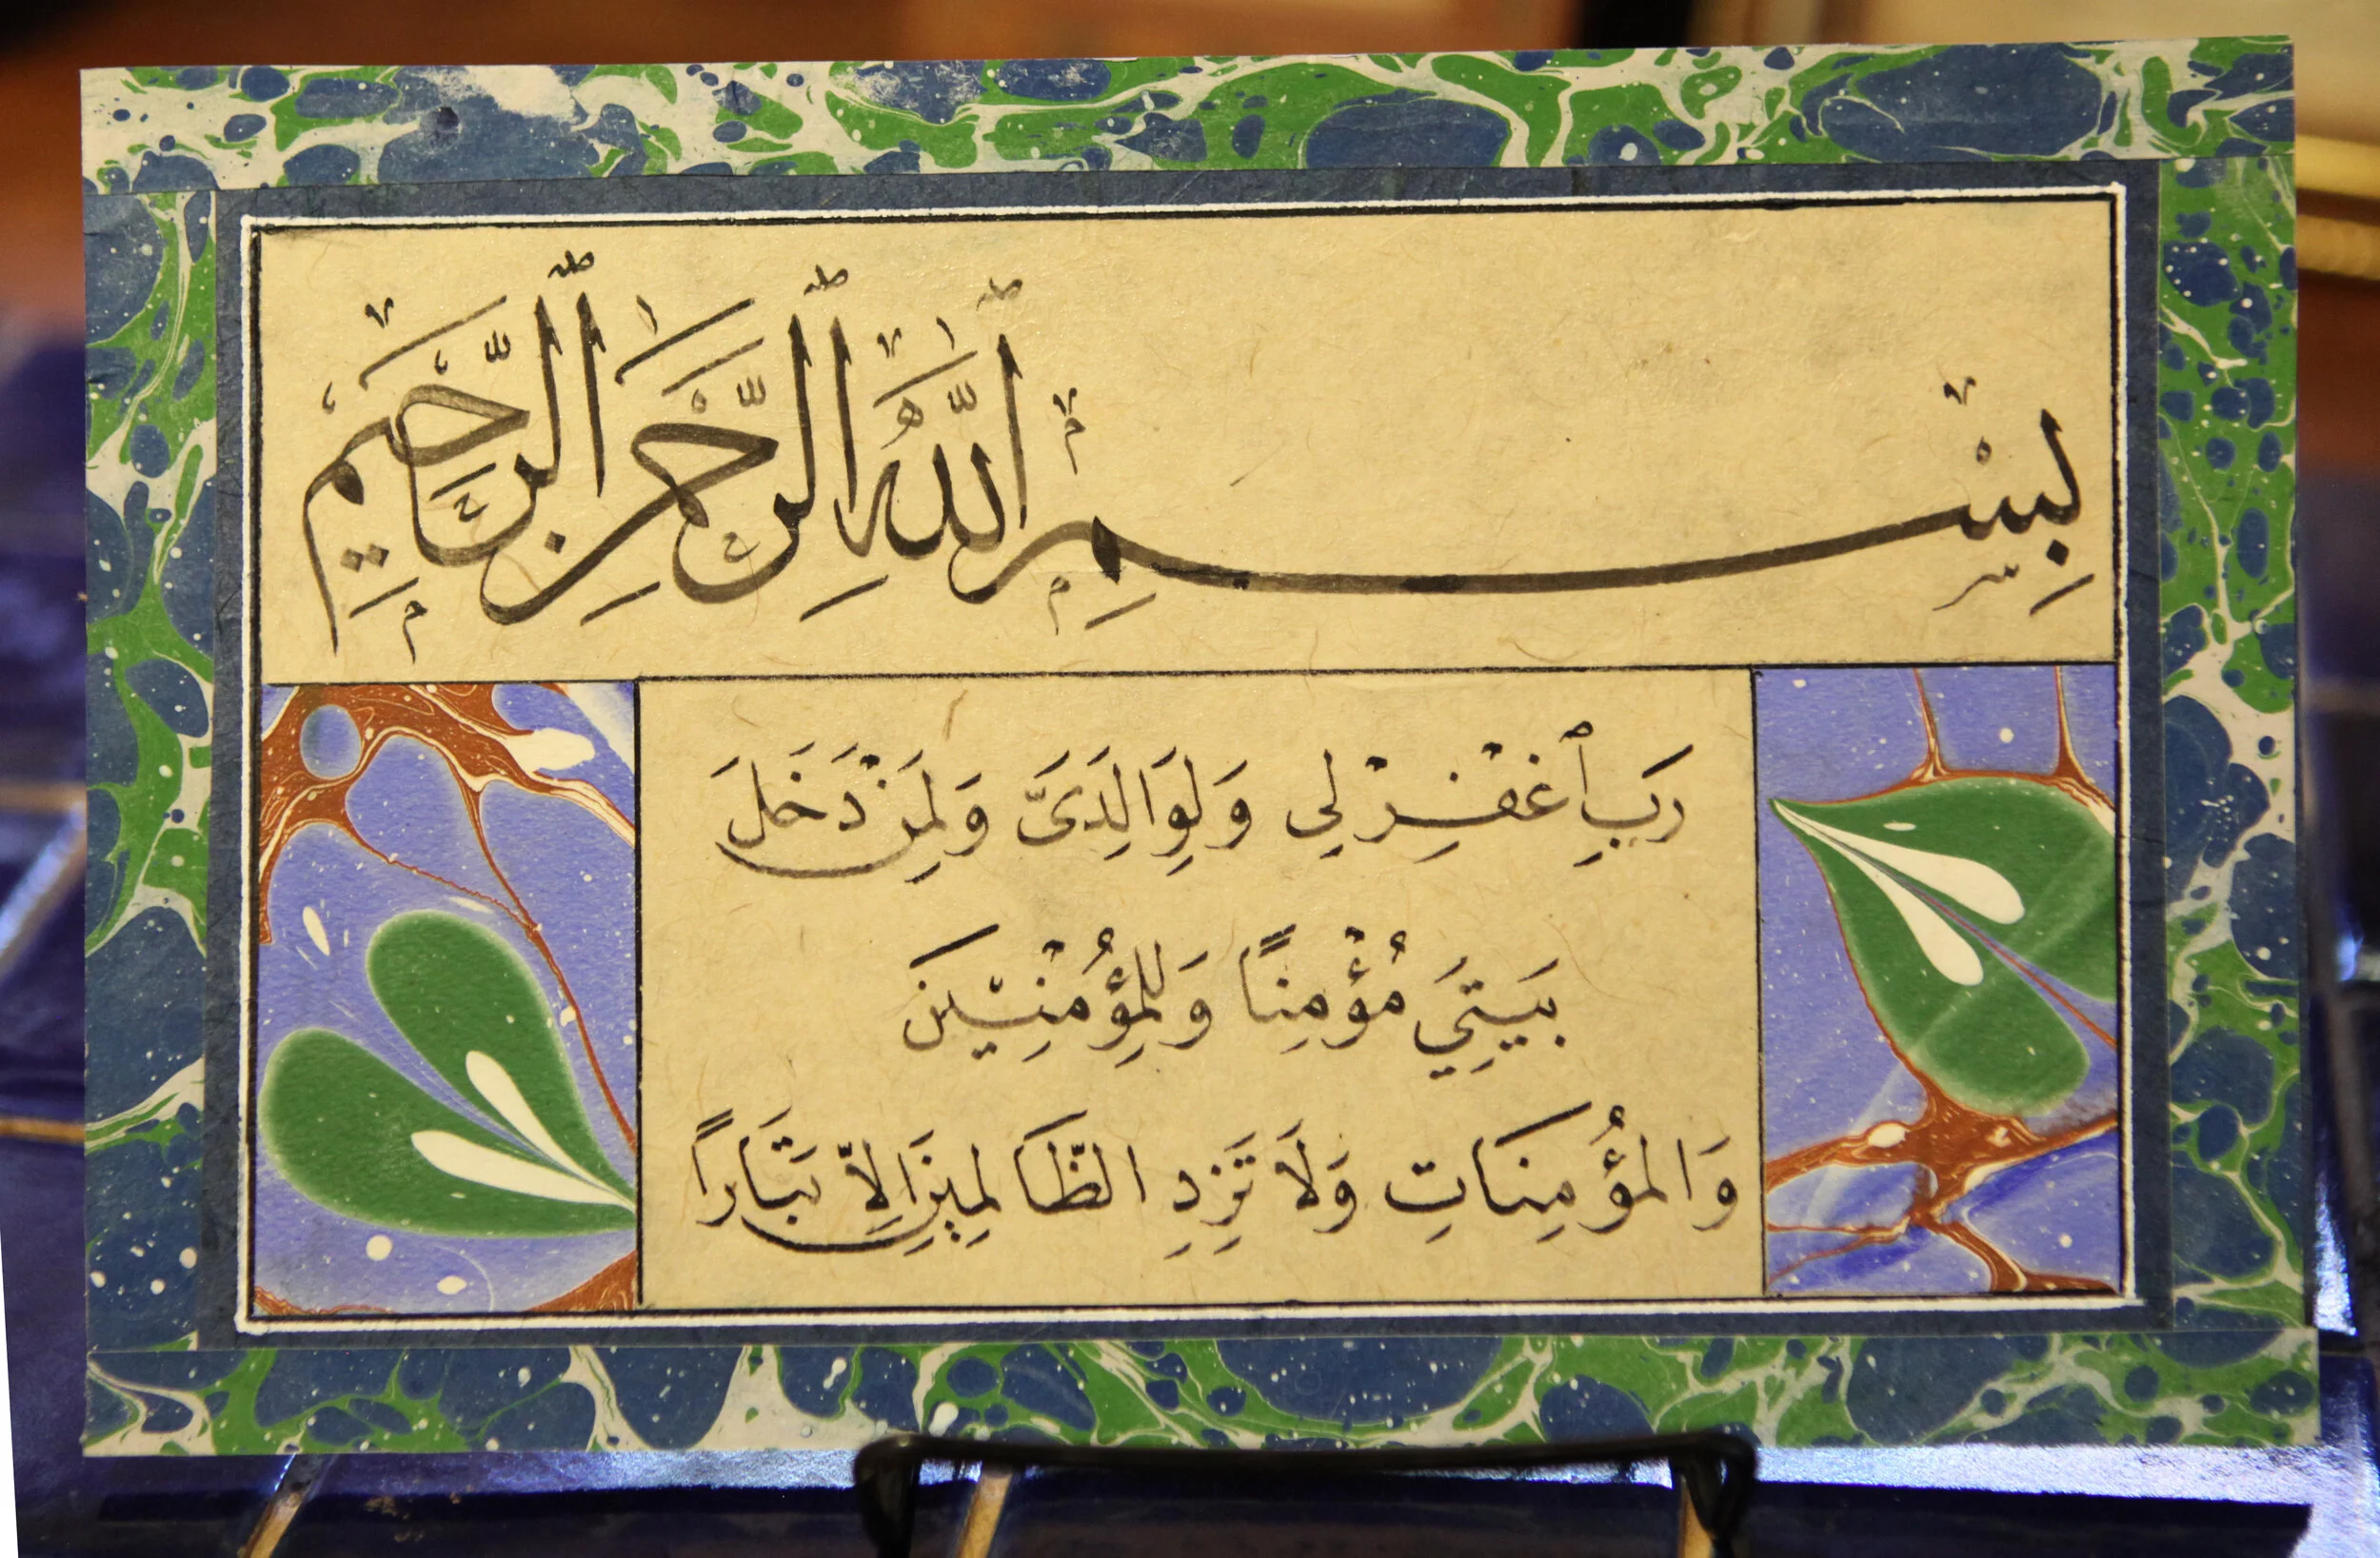 بِسْمِ ٱللَّهِ ٱلرَّحْمَٰنِ ٱلرَّحِيمِ
رَبِّ ٱغْفِرْ لِي وَلِوَالِدَيَّ وَلِمَنْ دَخَلَ
بَيْتِيَ مُؤْمِنًا وَلِلْمُؤْمِنِيْنَ
وَالْمُؤْمِنَاتِ وَلَا تَزِدِ الظَّالِمِيْنَ اِلَّا تَبَارًا